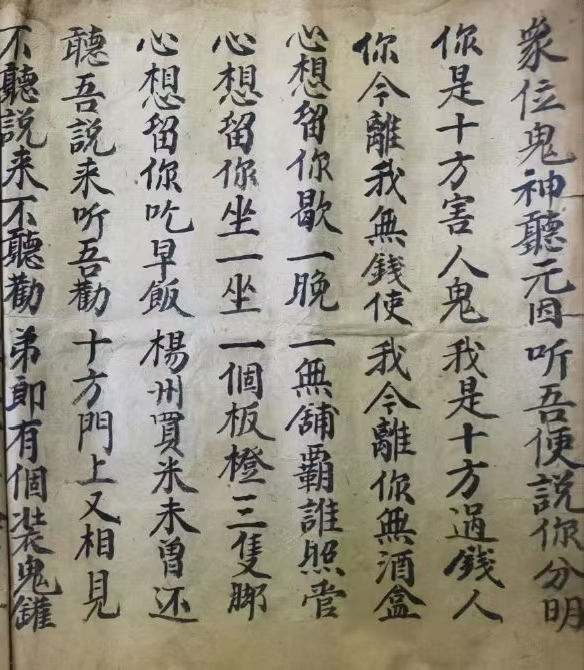 衆位鬼神聽元因 听吾便説你分明
你是十方害人鬼 我是十方過錢人
你今離我無錢使 我今離你無酒盒
心想留你歇一晚 一無舖覇誰照管
心想留你坐一坐 一個板橙三隻腳
心想留你吃早飯 楊州買米未曾还
聽吾説来听吾勸 十方門上又相見
不聽説来不聽勸 弟郎有個裝鬼罐